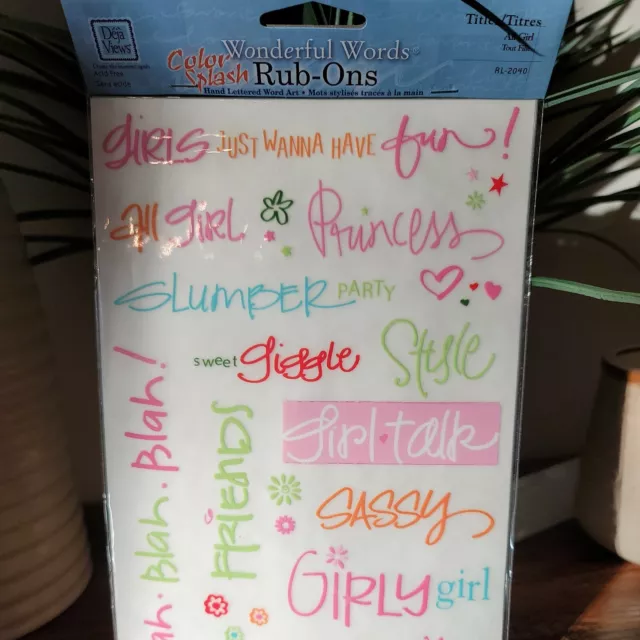 Déjà
Views
Color
Splash
Wonderful Words
Rub-Ons
Hand Lettered Word Art • Mots stylisés tracés à la main
Titles/Titres
All Girl
Tout Fille
RL-2040
Acid Free
girls JUST WANNA HAVE fun!
all girl
Princess
SLUMBER PARTY
sweet giggle
Style
girl talk
FRIENDS
SASSY
GIRLY girl
Blah. Blah. Blah!